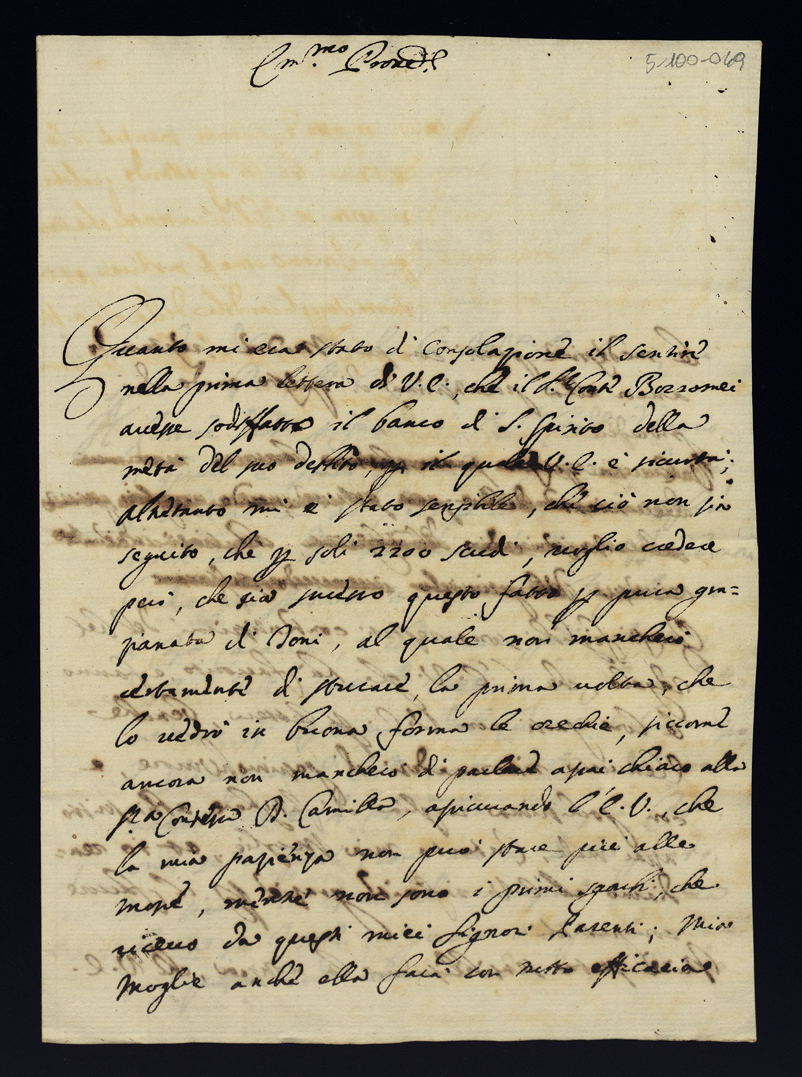 5-100-069
Em.mo Prone
Quanto mi era stato di consolazione il sentire
nella prima lettera di V.E., che il S.r Conte Borromei
avesse sodisfatto il banco di S. Spirito della
metà del suo debito, il quale V.E. è sicurtà;
altretanto mi è stato sensibile, che ciò non sia
seguito, che p soli 2200 scudi, voglio credere
però, che sia successo questo fatto p pura
di Boni, al quale non mancherò
certamente di stuccare, la prima volta, che
lo vedrò in buona forma le orechie, siccome
ancora non mancherò di parlare assai chiaro alla
S.ra Contessa D. Camilla, assicurando l'E.V., che
la mia pazienza non può stare più alle
mosse, mentre non sono i primi, che
ricevo da questi miei Signori Parenti; Mia
Moglie anche ella farà con tutta efficacia